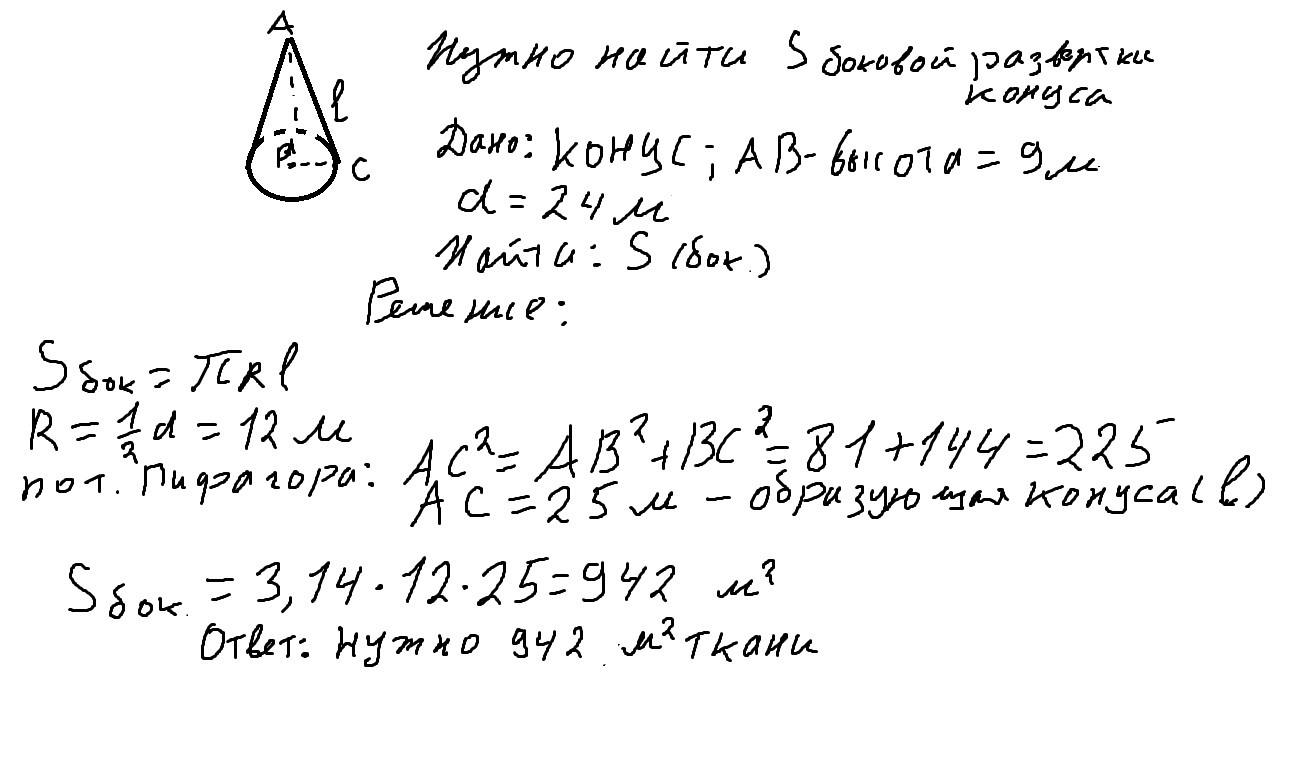 A
Нужно найти S боковой развертки
конуса
l
B
C
Дано: конус; AB - высота = 9 м
d = 24 м
Найти: S (бок.)
Решение:
S бок = πRl
R = 1/2 d = 12 м
по т. Пифагора: AC² = AB² + BC² = 81 + 144 = 225
AC = 25 м - образующая конуса (l)
S бок. = 3,14 · 12 · 25 = 942 м²
Ответ: нужно 942 м² ткани